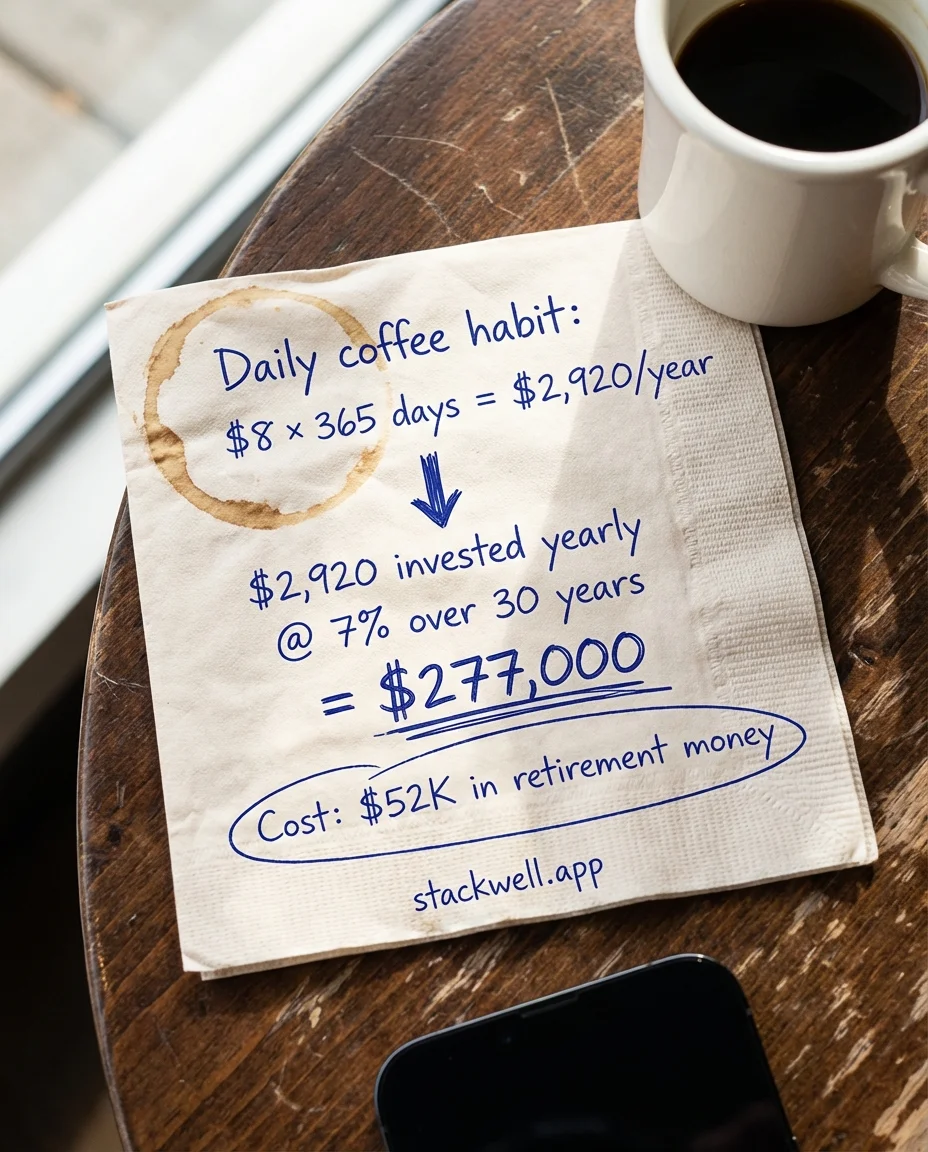 Daily coffee habit:
$8 × 365 days = $2,920/year
$2,920 invested yearly
@ 7% over 30 years
= $277,000
Cost: $52K in retirement money
stackwell.app